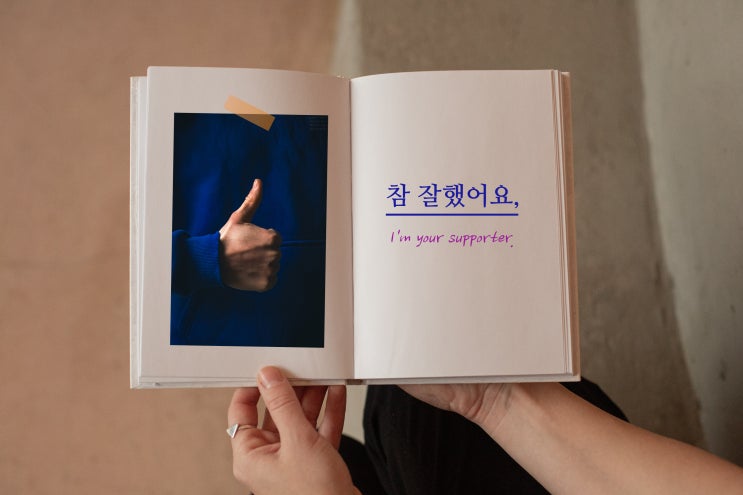 참 잘했어요,
I'm your supporter.